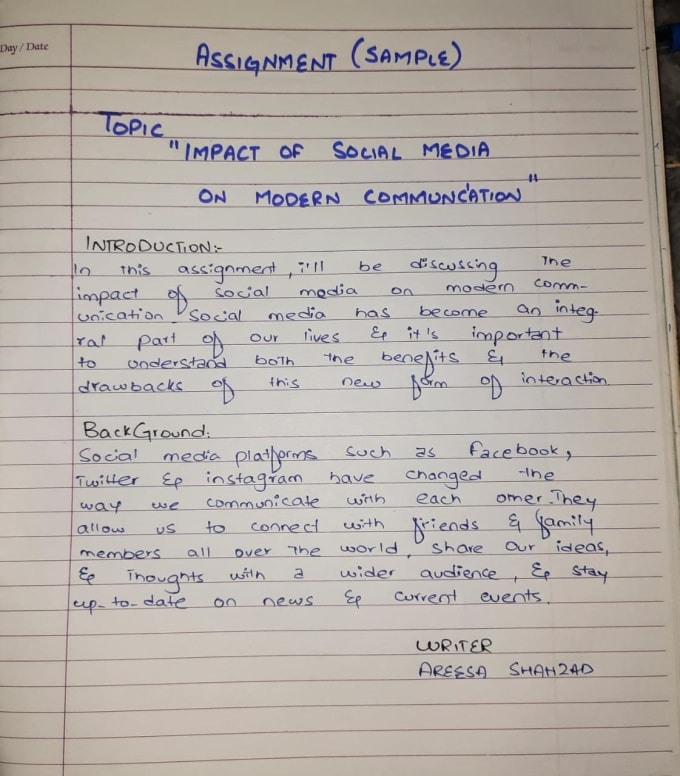 Day / Date
ASSIGNMENT (SAMPLE)
TOPIC
"IMPACT OF SOCIAL MEDIA
ON MODERN COMMUNCATION"
INTRODUCTION:-
In this assignment, i'll be discussing the
impact of social media on modern comm-
unication. Social media has become an integ-
ral part of our lives & it's important
to understand both the benefits & the
drawbacks of this new form of interaction
BackGround:
Social media platforms such as Facebook,
Twitter & instagram have changed the
way we communicate with each other. They
allow us to connect with friends & family
members all over the world, share our ideas,
& thoughts with a wider audience, & stay
up-to-date on news & current events.
WRITER
AREESA SHAHZAD